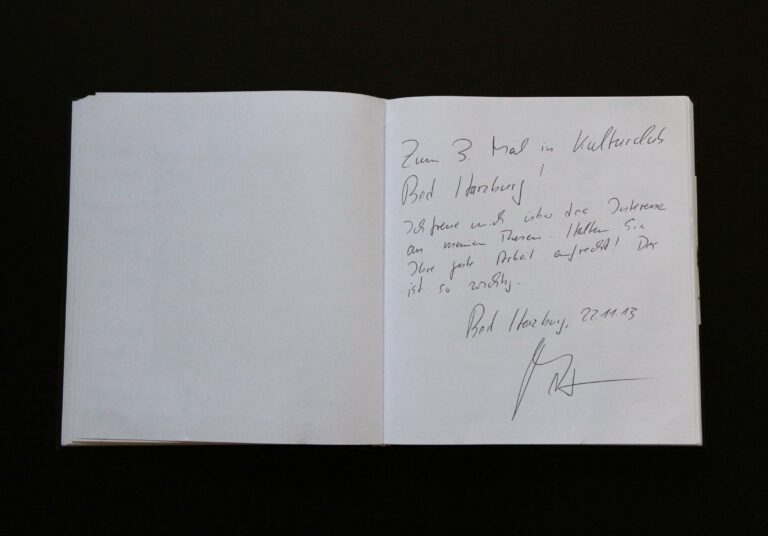 Zum 3. Mal in Kulturclub
Bad Harzburg!
Ich freue mich über das Interesse
an meinen Thesen. Halten Sie
Ihre gute Arbeit aufrecht! Das
ist so wichtig.
Bad Harzburg, 22.11.13